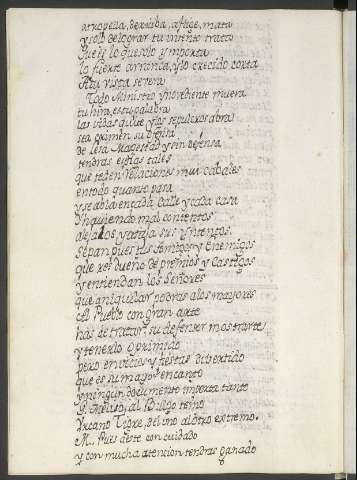 atropella, derriba, aflige, mata
y solo de lograr tu intento trata
Que es lo que solo ymporta
lo fuerte arranca, y lo crecido corta
A tu vista severa
Todo Ministro ynobediente muera
tu hira, es tu palabra
las vidas quite y los sepulcros abra
sea crimen su ofensa
de lesa Magestad y sin defensa
tendras espias tales
que te den relaciones mui cabales
en todo quanto pasa
y se abla en cada Calle y cada casa
ynquiriendo mal contentos
alejalos y ataja sus yntentos.
Sepan pues tus Amigos y Enemigos
que heres dueño de premios y Castigos
y entiendan los Señores
que aniquilar podras a los mayores
Al Pueblo con gran arte
has de tratar, su defensor mostrarte,
y tenerlo oprimido
pero en vicios y fiestas divertido
que es su mayor encanto
y ningun documento importa tanto
al Bulgo temo
Yrcano Tigre, del uno al otro extremo.
M. Pues a este con cuidado
y con mucha atencion tendras ganado